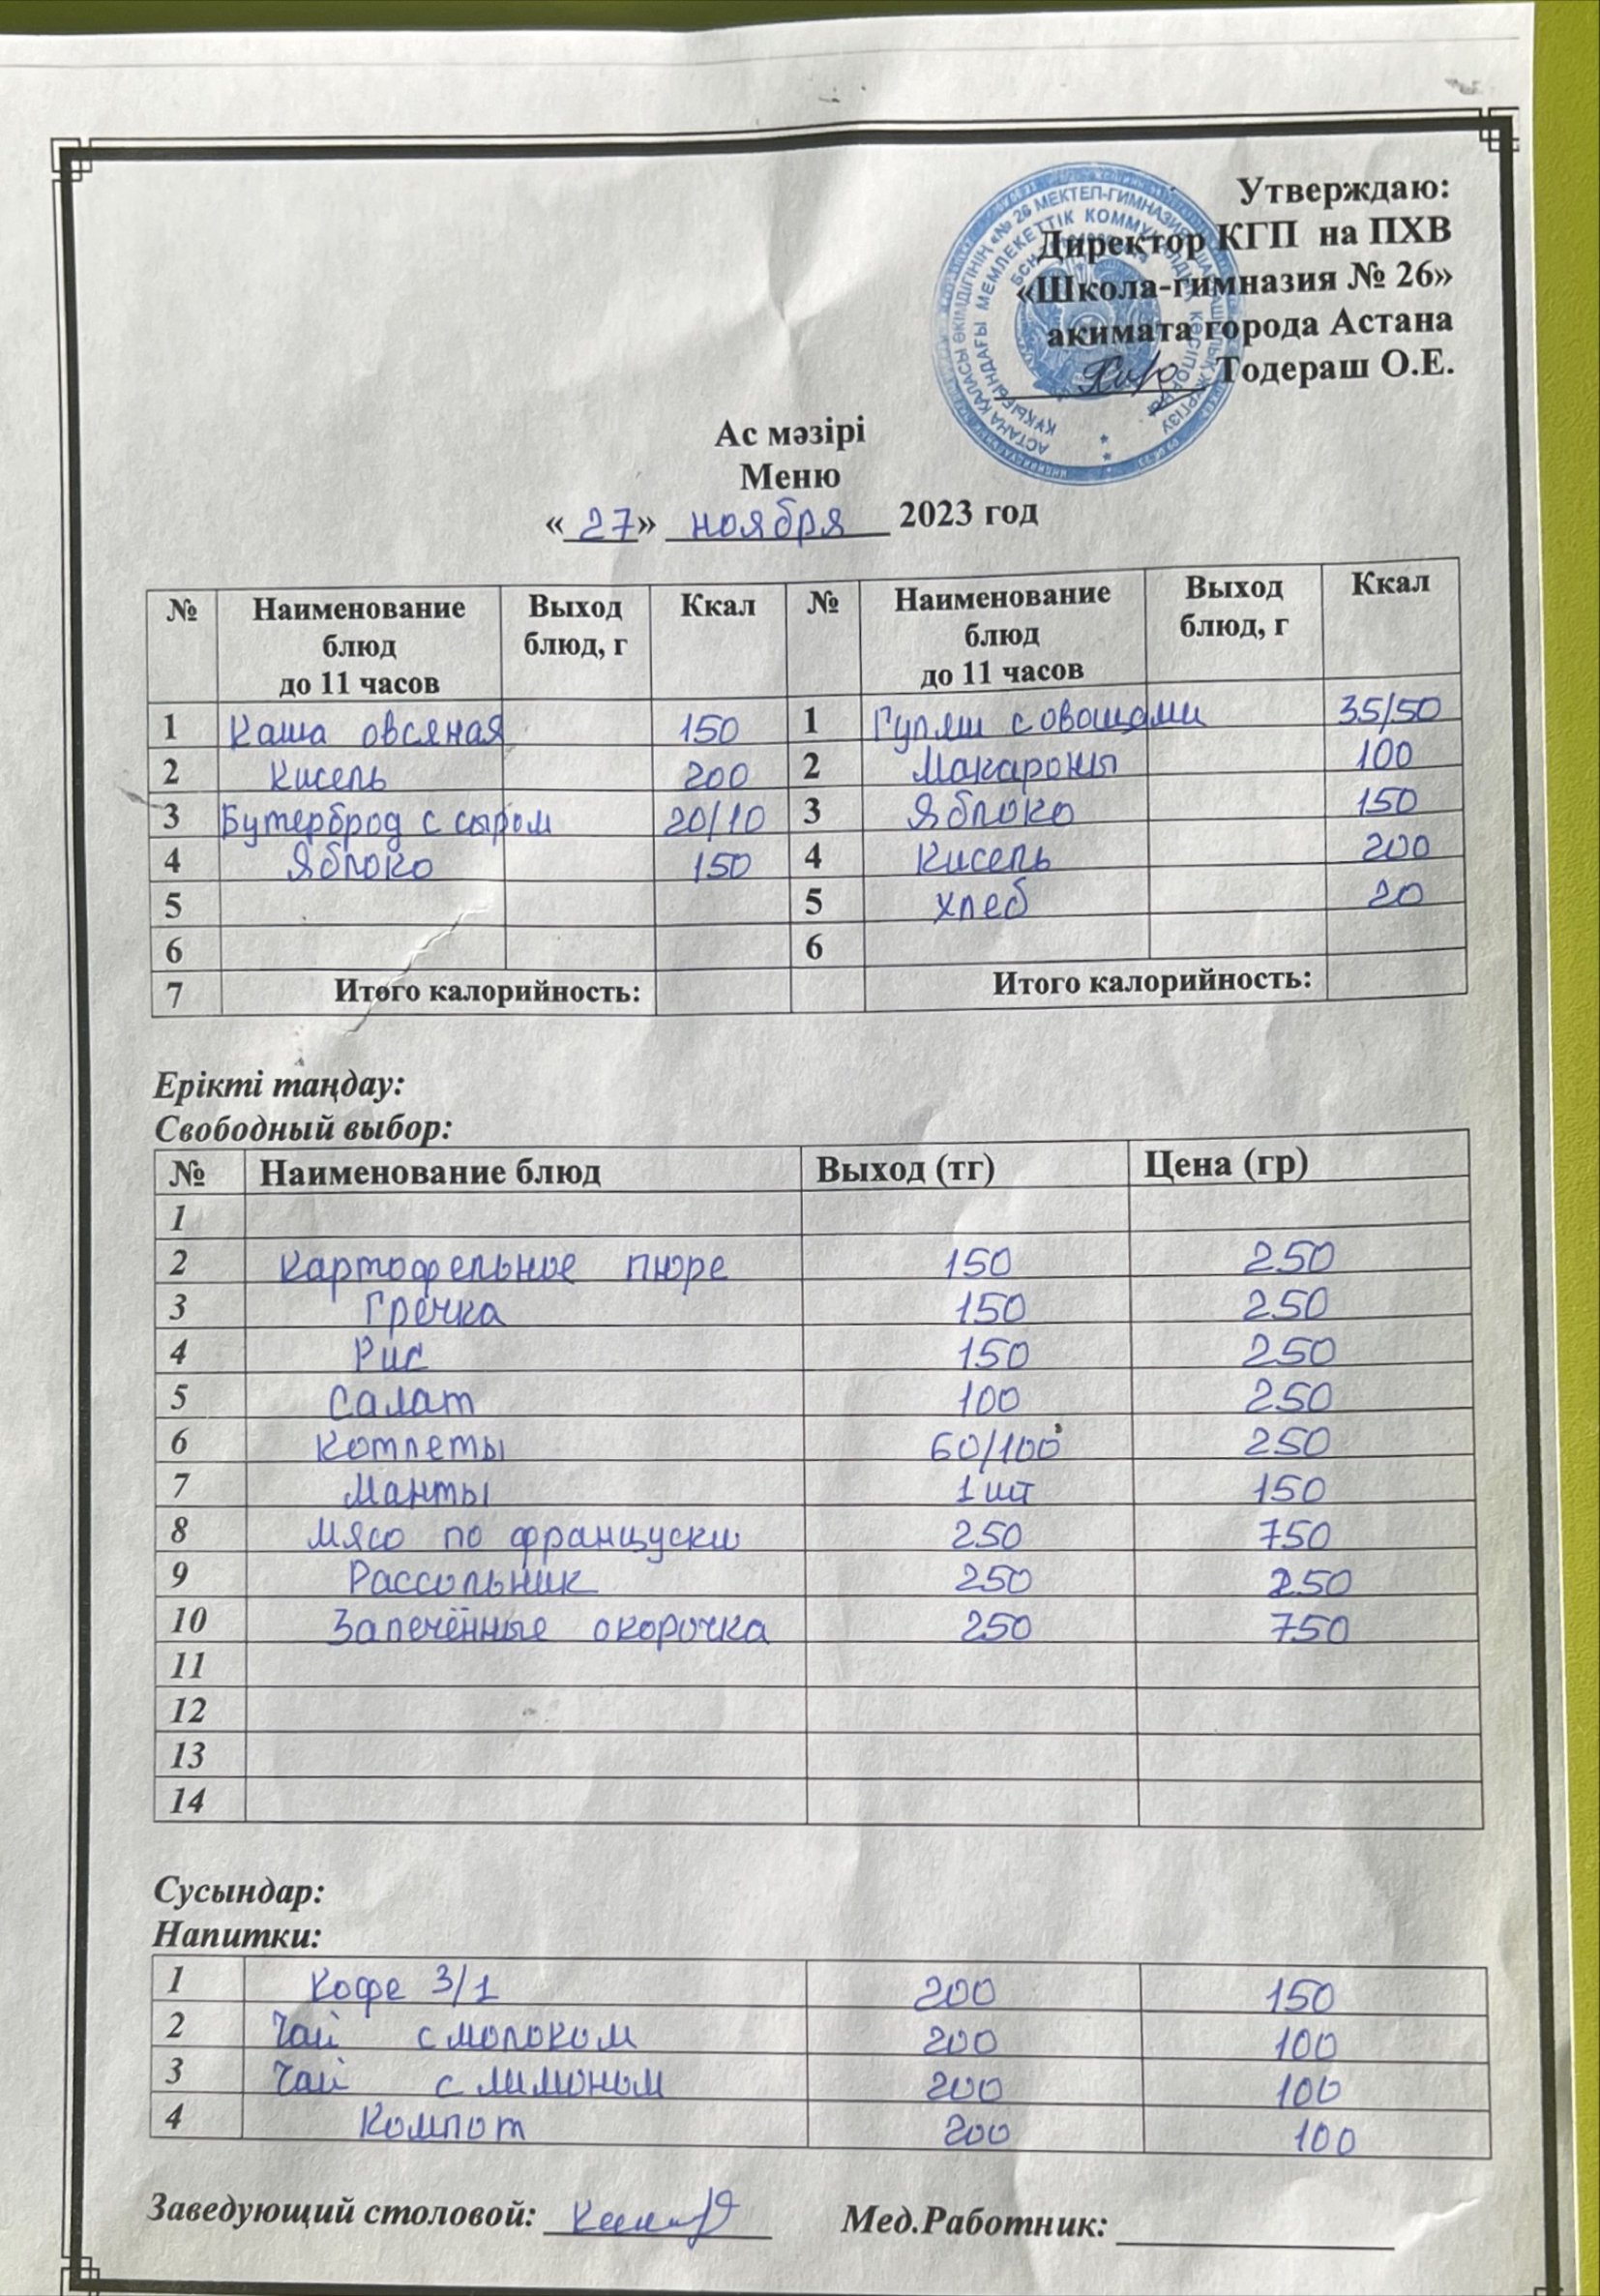 Утверждаю:
Директор КГП на ПХВ
«Школа-гимназия № 26»
акимата города Астана
Тодераш О.Е.
Ас мәзірі
Меню
«27» ноября 2023 год
№ Наименование блюд до 11 часов Выход блюд, г Ккал № Наименование блюд до 11 часов Выход блюд, г Ккал
1 Каша овсяная 150 1 Гуляш с овощами 35/50
2 Кисель 200 2 Макароны 100
3 Бутерброд с сыром 20/10 3 Яблоко 150
4 Яблоко 150 4 Кисель 200
5 5 хлеб 20
6 6
7 Итого калорийность: Итого калорийность:
Ерікті таңдау:
Свободный выбор:
№ Наименование блюд Выход (тг) Цена (гр)
1
2 Картофельное пюре 150 250
3 Гречка 150 250
4 Рис 150 250
5 Салат 100 250
6 Котлеты 60/100 250
7 Манты 1 шт 150
8 Мясо по француски 250 750
9 Рассольник 250 250
10 Запечённые окорочка 250 750
11
12
13
14
Сусындар:
Напитки:
1 Кофе 3/1 200 150
2 Чай с молоком 200 100
3 Чай с лимоном 200 100
4 Компот 200 100
Заведующий столовой: Мед.Работник: